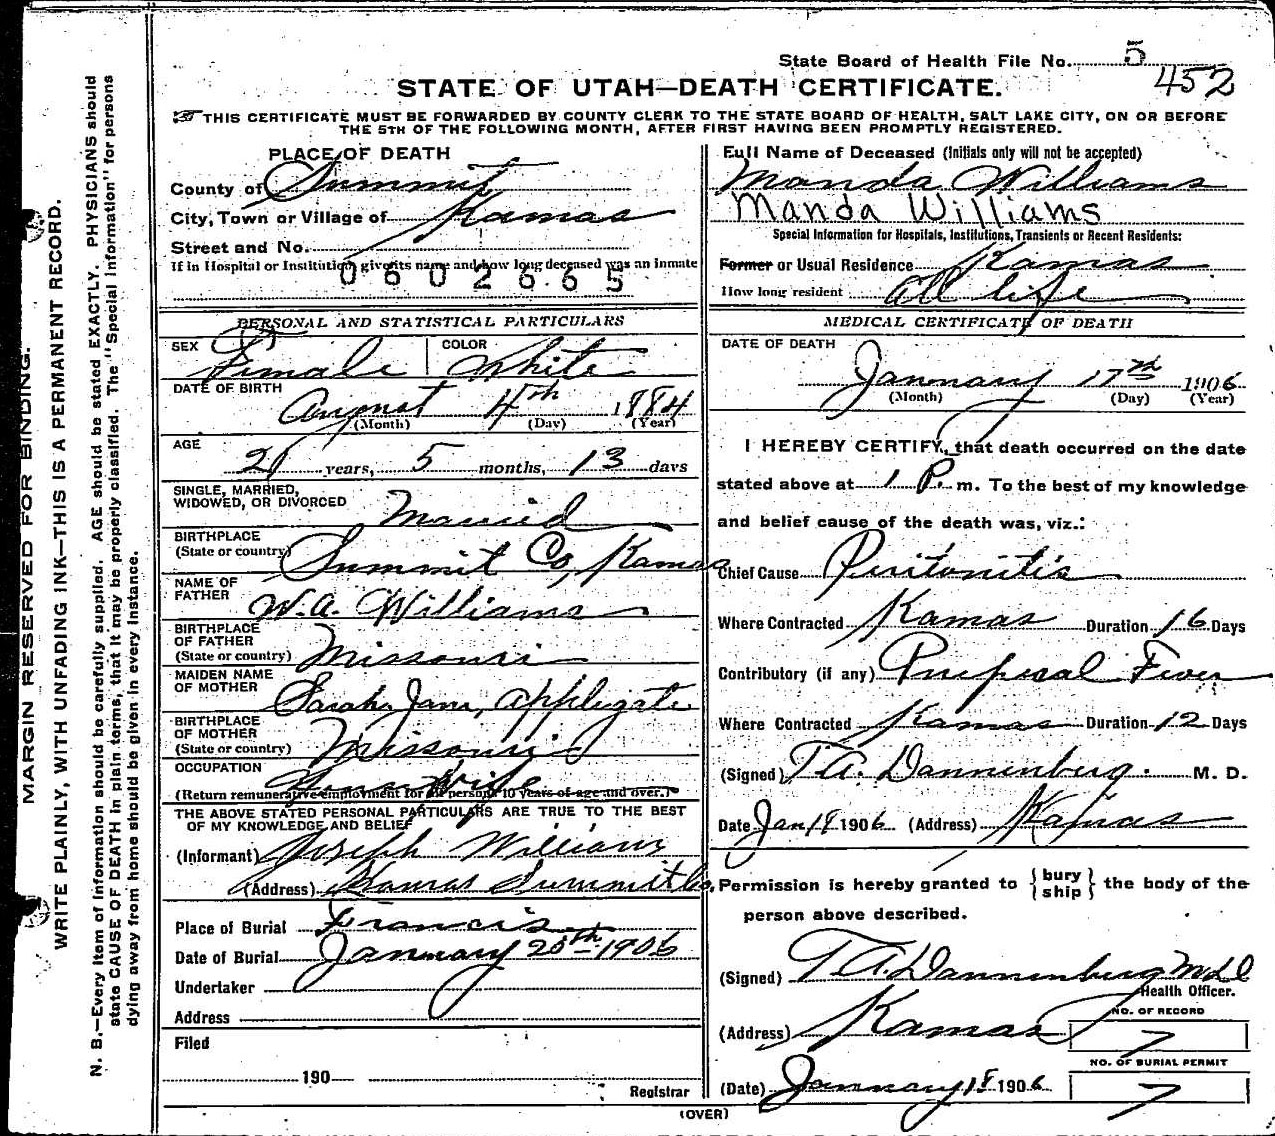 State Board of Health File No. 5
452
STATE OF UTAH—DEATH CERTIFICATE.
THIS CERTIFICATE MUST BE FORWARDED BY COUNTY CLERK TO THE STATE BOARD OF HEALTH, SALT LAKE CITY, ON OR BEFORE
THE 5TH OF THE FOLLOWING MONTH, AFTER FIRST HAVING BEEN PROMPTLY REGISTERED.
PLACE OF DEATH
County of Summit
City, Town or Village of Kamas
Street and No.
If in Hospital or Institution, give its name and how long deceased was an inmate
0602665
PERSONAL AND STATISTICAL PARTICULARS
SEX Female COLOR White
DATE OF BIRTH August 4th 1884
(Month) (Day) (Year)
AGE 21 years, 5 months, 13 days
SINGLE, MARRIED,
WIDOWED, OR DIVORCED Married
BIRTHPLACE
(State or country) Summit Co, Kamas
NAME OF
FATHER W.A. Williams
BIRTHPLACE
OF FATHER
(State or country) Missouri
MAIDEN NAME
OF MOTHER Sarah Jane Applegate
BIRTHPLACE
OF MOTHER
(State or country) Missouri
OCCUPATION
(Return remunerative employment for all persons 10 years of age and over.)
THE ABOVE STATED PERSONAL PARTICULARS ARE TRUE TO THE BEST
OF MY KNOWLEDGE AND BELIEF
(Informant) Joseph Williams
(Address) Kamas Summit Co,
Place of Burial Francis
Date of Burial January 20th 1906
Undertaker
Address
Filed
190
Registrar
Full Name of Deceased (Initials only will not be accepted)
Manda Williams
Manda Williams
Special Information for Hospitals, Institutions, Transients or Recent Residents:
Former or Usual Residence Kamas
How long resident all life
MEDICAL CERTIFICATE OF DEATH
DATE OF DEATH
January 17th 1906
(Month) (Day) (Year)
I HEREBY CERTIFY, that death occurred on the date
stated above at 1 P. m. To the best of my knowledge
and belief cause of the death was, viz.:
Chief Cause Peritonitis
Where Contracted Kamas Duration 16 Days
Contributory (if any) Fever
Where Contracted Kamas Duration 12 Days
(Signed) T.A. Dannenberg. M. D.
Date Jan 18 1906 (Address) Kamas
Permission is hereby granted to { bury
ship } the body of the
person above described.
(Signed) T.A. Dannenberg M.D
Health Officer.
(Address) Kamas
NO. OF RECORD
7
NO. OF BURIAL PERMIT
(Date) January 18 1906 7
(OVER)
MARGIN RESERVED FOR BINDING.
WRITE PLAINLY, WITH UNFADING INK—THIS IS A PERMANENT RECORD.
N. B.—Every item of information should be carefully supplied. AGE should be stated EXACTLY. PHYSICIANS should
state CAUSE OF DEATH in plain terms, that it may be properly classified. The "Special Information" for persons
dying away from home should be given in every instance.